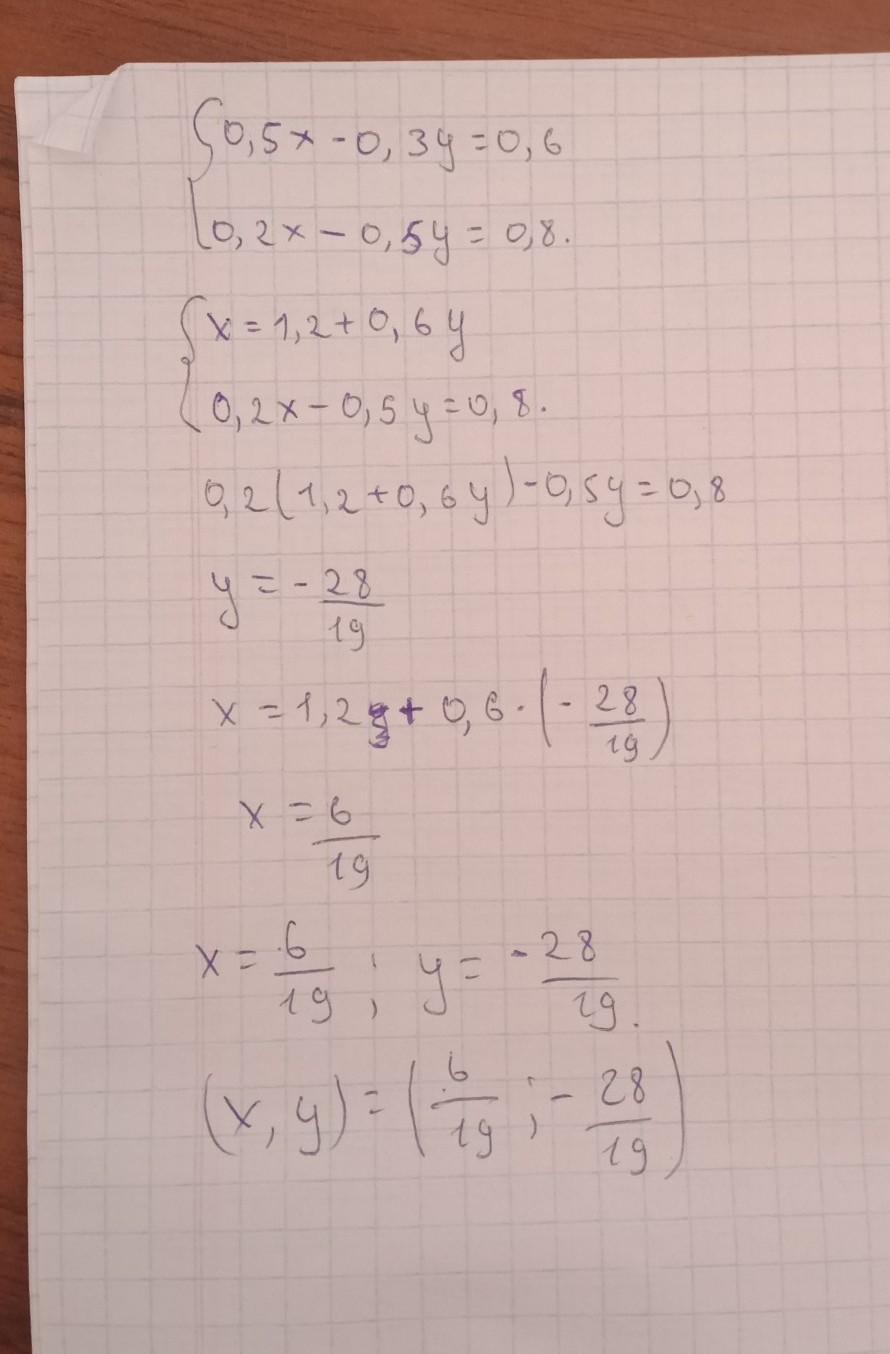 {0,5x-0,3y=0,6
0,2x-0,5y=0,8.
{x=1,2+0,6y
0,2x-0,5y=0,8.
0,2(1,2+0,6y)-0,5y=0,8
y=-28/19
x=1,2+0,6·(-28/19)
x=6/19
x=6/19; y=-28/19.
(x,y)=(6/19;-28/19)